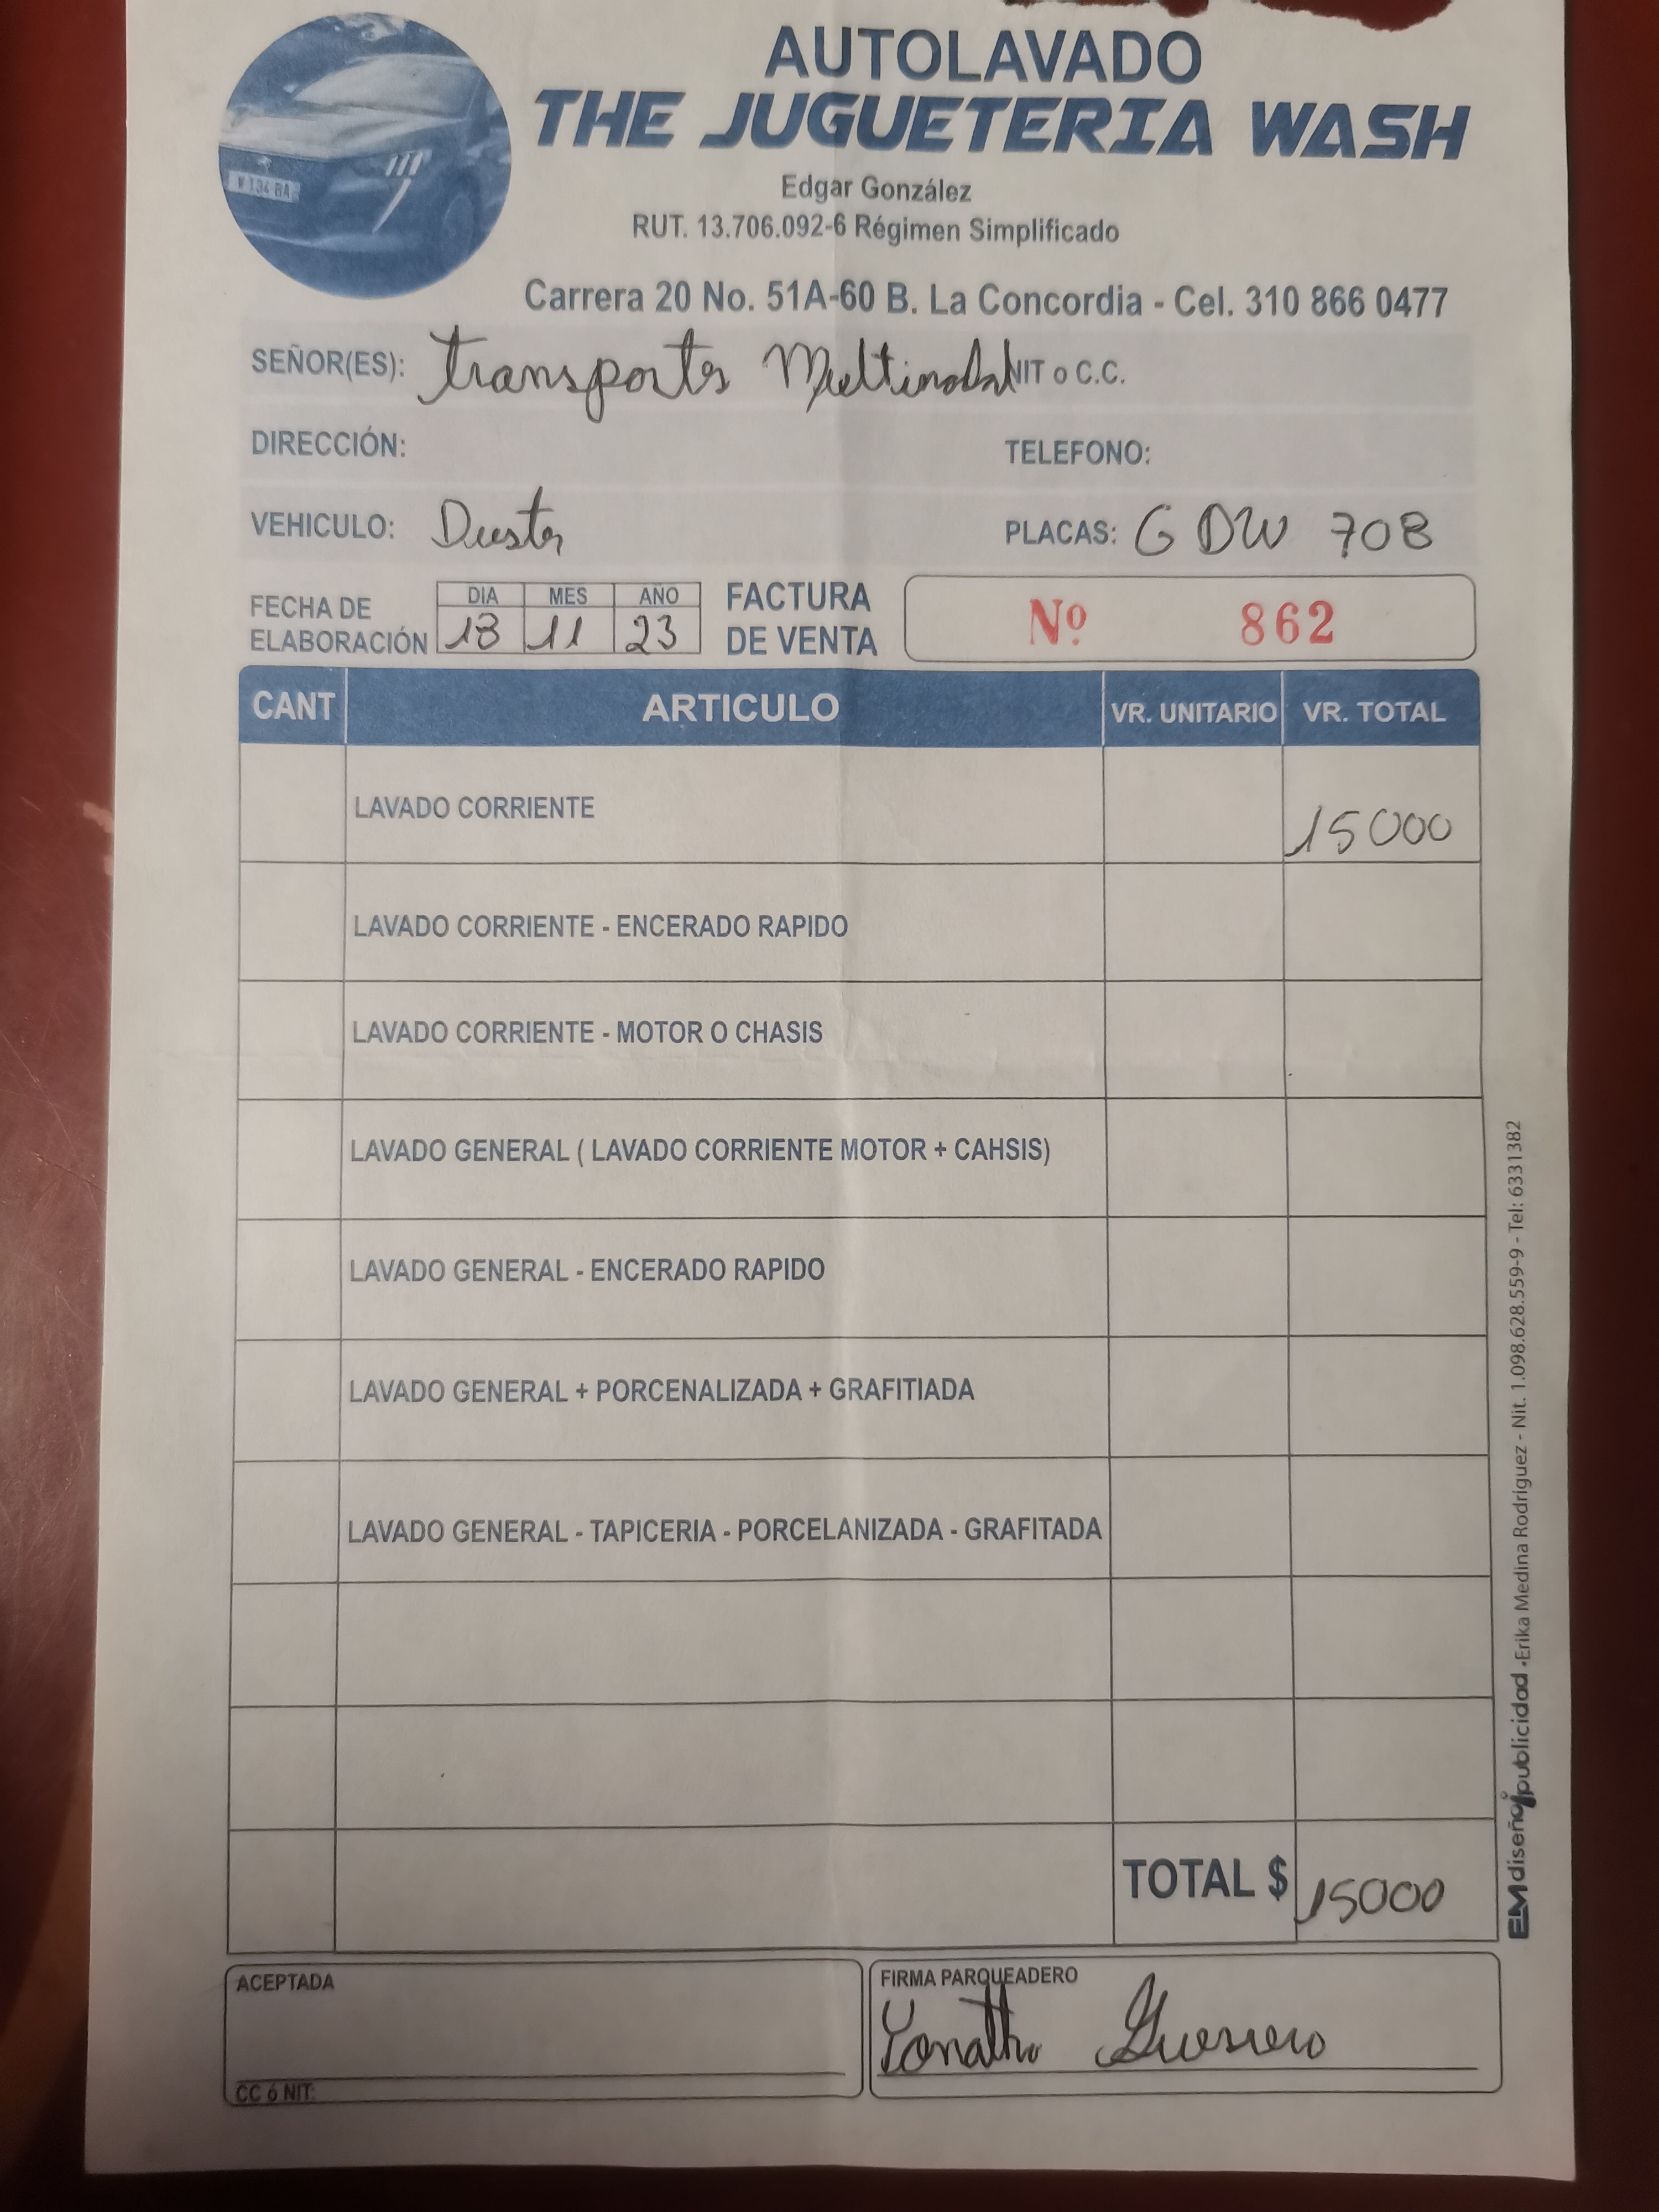 AUTOLAVADO
THE JUGUETERIA WASH
Edgar González
RUT. 13.706.092-6 Régimen Simplificado
Carrera 20 No. 51A-60 B. La Concordia - Cel. 310 866 0477
W 134 BA
SEÑOR(ES): Transportes Multimodal NIT o C.C.
DIRECCIÓN: TELEFONO:
VEHICULO: Duster PLACAS: GDW 708
FECHA DE ELABORACIÓN DIA MES AÑO
18 11 23
FACTURA DE VENTA Nº 862
CANT ARTICULO VR. UNITARIO VR. TOTAL
LAVADO CORRIENTE 15000
LAVADO CORRIENTE - ENCERADO RAPIDO
LAVADO CORRIENTE - MOTOR O CHASIS
LAVADO GENERAL ( LAVADO CORRIENTE MOTOR + CAHSIS)
LAVADO GENERAL - ENCERADO RAPIDO
LAVADO GENERAL + PORCENALIZADA + GRAFITIADA
LAVADO GENERAL - TAPICERIA - PORCELANIZADA - GRAFITADA
TOTAL $ 15000
ACEPTADA
CC ó NIT:
FIRMA PARQUEADERO
Guerrero
EM diseño publicidad • Erika Medina Rodriguez - Nit. 1.098.628.559-9 - Tel: 6331382